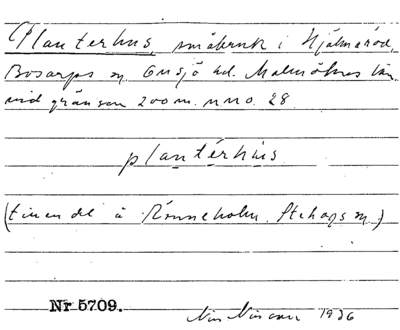 Planterhus, småbruk i Hjälmaröd,
Bosarps sn. Onsjö hd. Malmöhus län
vid gränsen 200 m. nno. 28
plantérhus
(tinende å Rönneholm. Stehags sn)
Nr 5709.
Nils Nilsson 1936